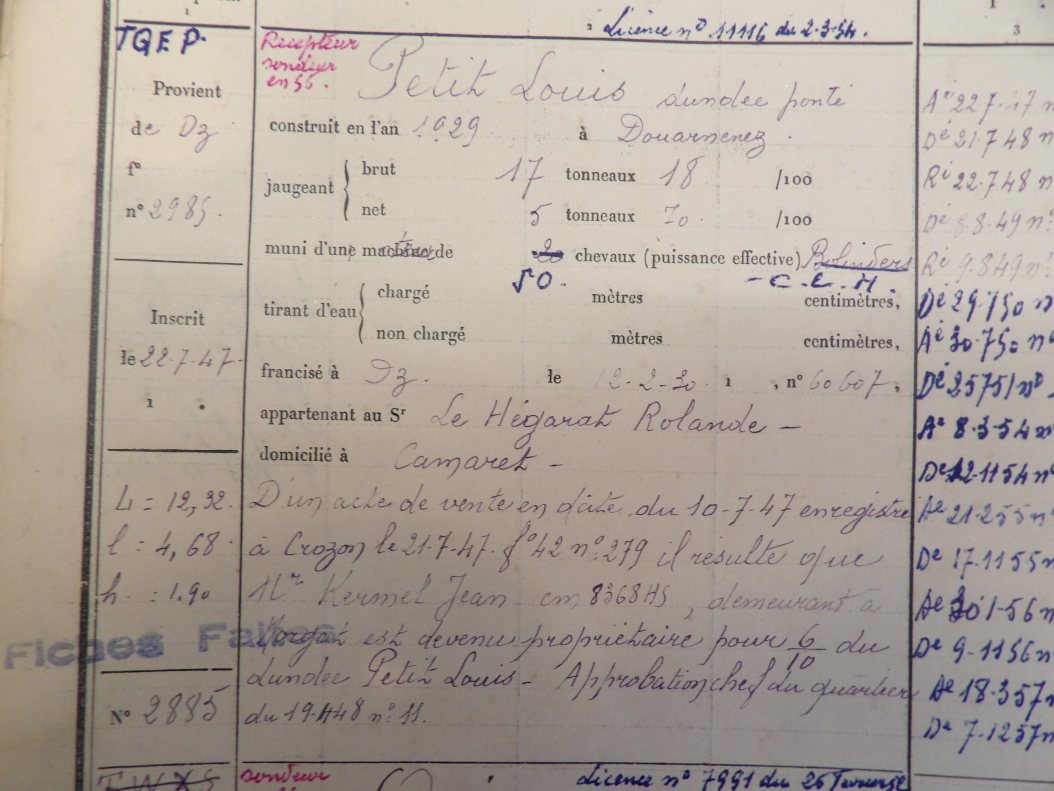 1
2 Licence n° 11116 du 2-3-54.
3
TQEP.
Recepteur
sondeur
en 56.
Petit Louis dundee ponté
Provient
de Dz
f°
n° 2985.
construit en l'an 1929 à Douarnenez.
jaugeant
brut 17 tonneaux 18 /100
net 5 tonneaux 70 /100
muni d'une machine de 20 chevaux (puissance effective) Bolinders
50. - C.E.M.
tirant d'eau
chargé mètres centimètres,
non chargé mètres centimètres,
Inscrit
le 22.7.47.
1
francisé à Dz. le 12-2-30. 1 , n° 60607.
appartenant au Sr Le Hégarat Rolande -
domicilié à Camaret -
L = 12,32.
l = 4,68.
h. = 1.90
D'un acte de vente en date du 10-7-47 enregistré
à Crozon le 21.7.47. f° 42 n° 279 il résulte que
Mr Kermel Jean cm 8368 HS, demeurant à
Morgat est devenu propriétaire pour 6/10 du
dundee Petit Louis - Approbation chef du quartier
du 19 448 n° 11.
Fiches Faites
N° 2885
Ai 22 7.47 n
Dé 21.7.48 n
Ri 22.748 n
De 8.8.49 n°
Ri 9.849 n°
Dé 29.750 n
Ai 30.750 n°
Dé 25751 n°
Ai 8-3-54 n
De 12.1154 n°
Ai 21.255 n
De 17.1155 n
Ai 301-56 n
De 9-1156 n
Ai 18.357 n
De 7.1257 n
sondeur
Licence n° 7991 du 26